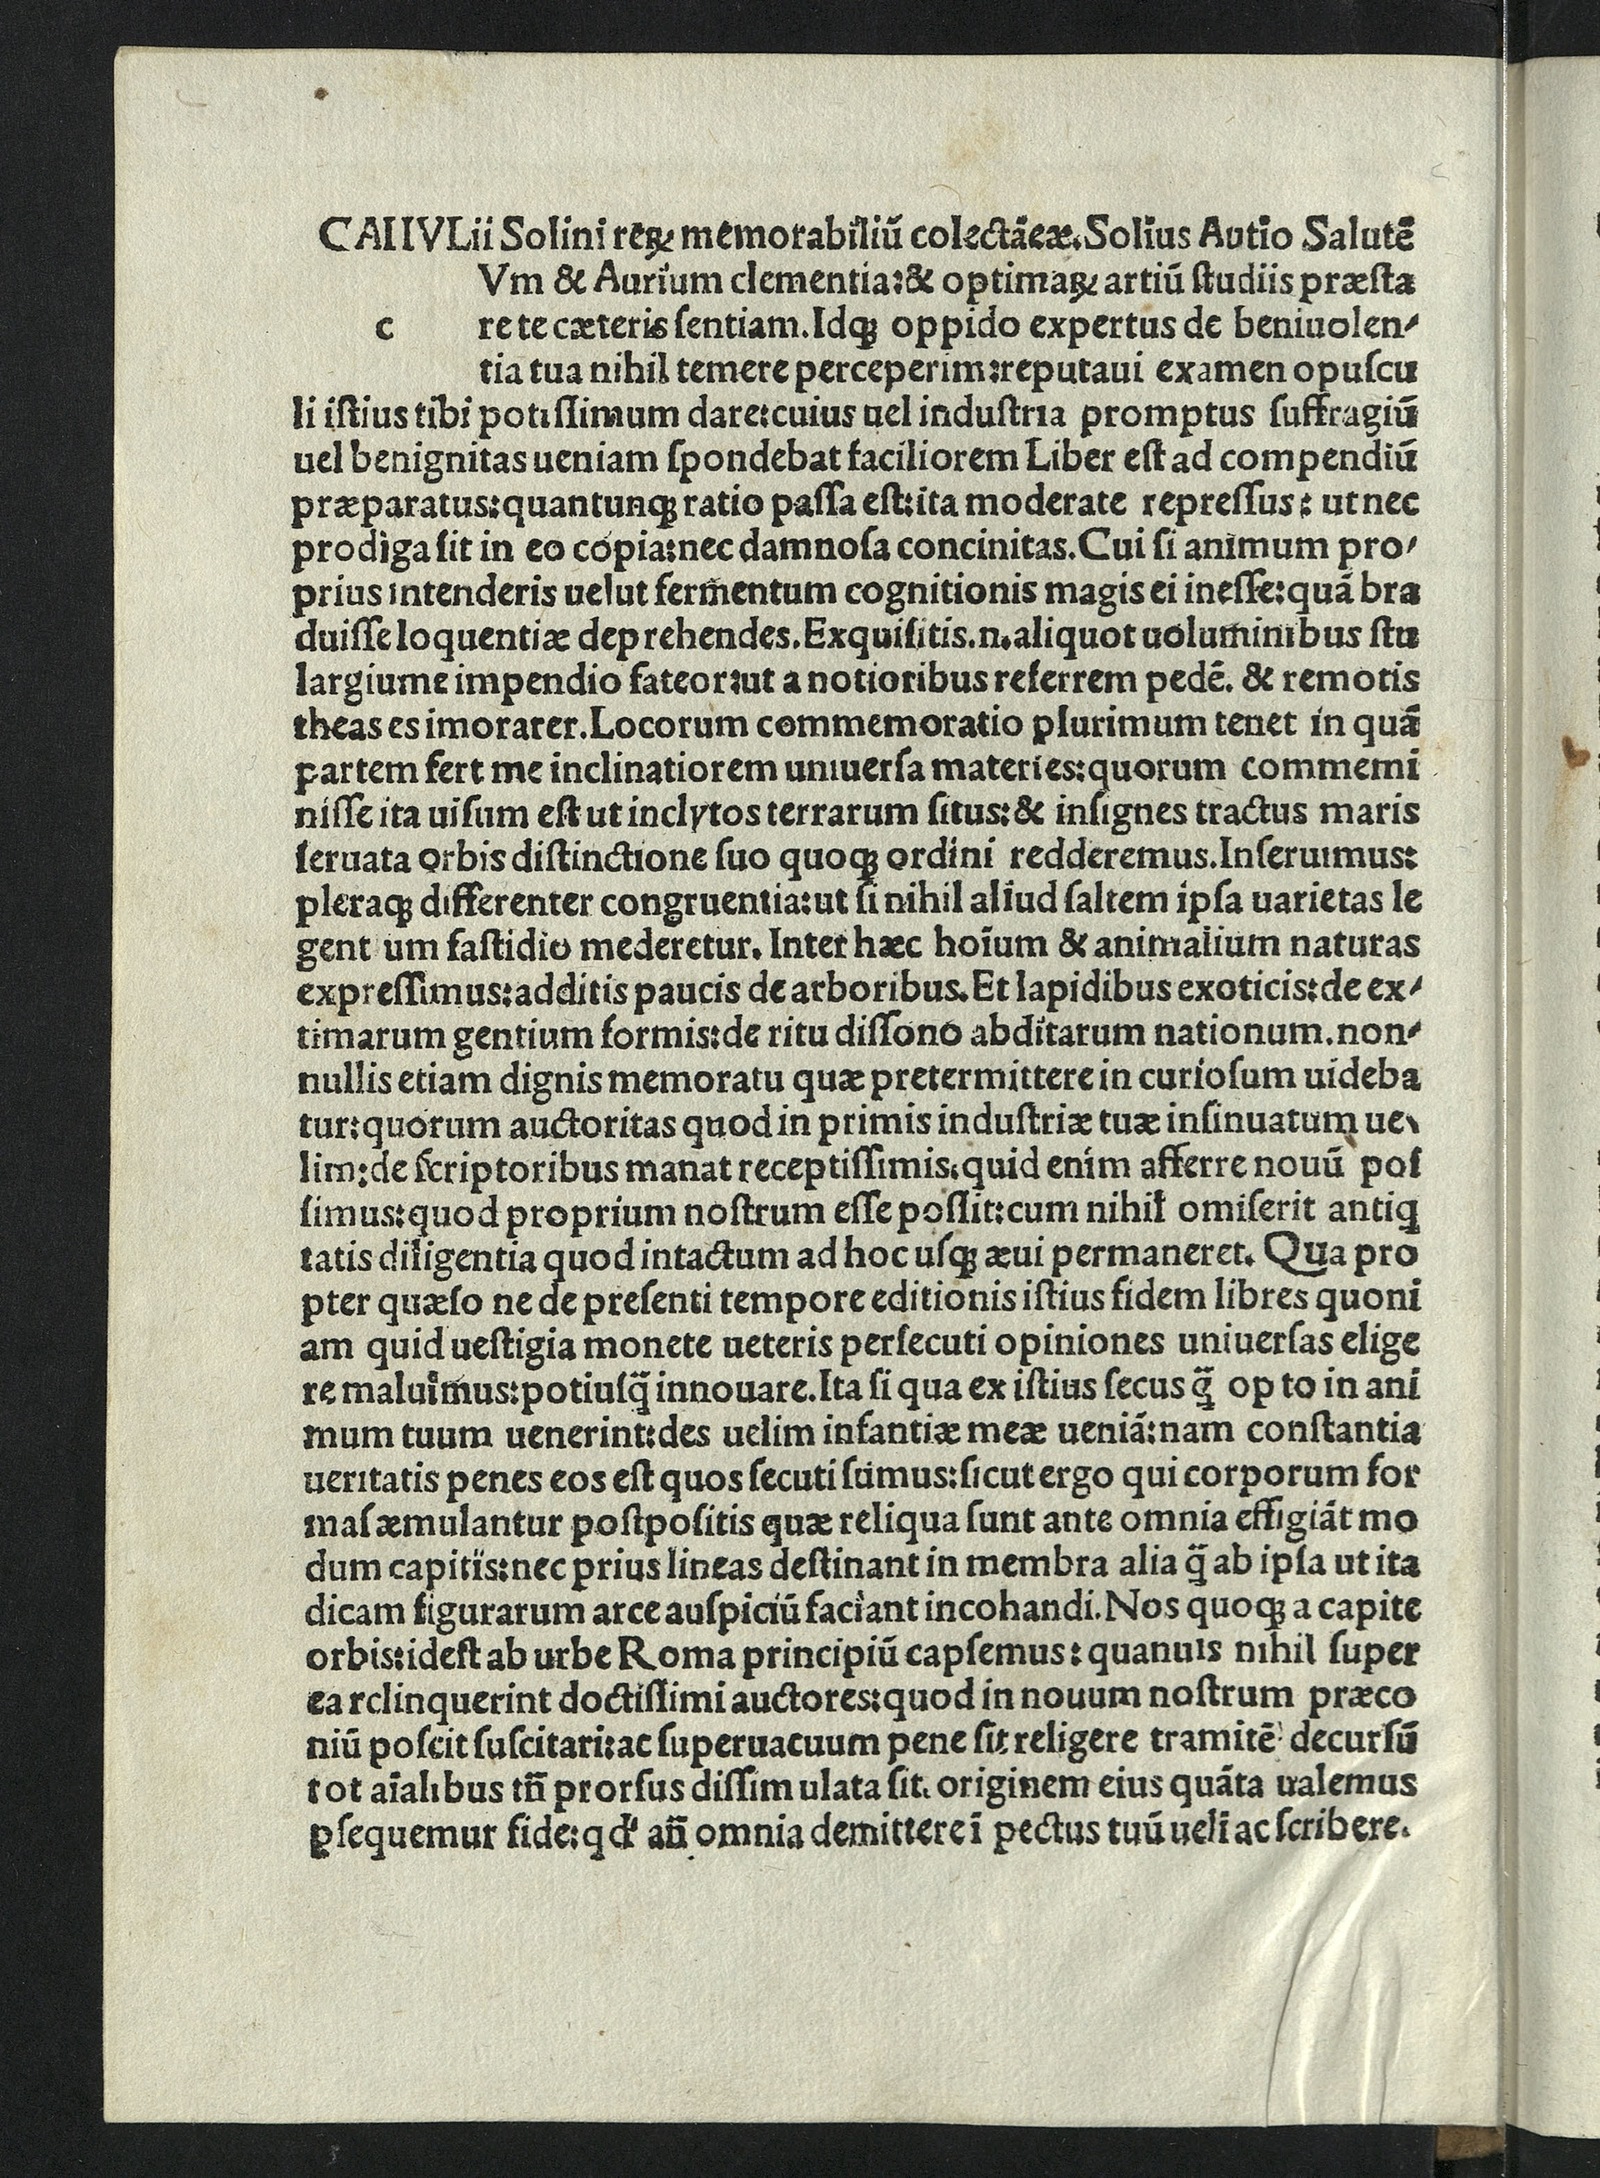 CAIIVLii Solini reꝝ memorabiliū colectāeæ. Solius Autio Salutē
Vm & Aurium clementia: & optimaꝝ artiū ſtudiis præſta
c re te cæteris ſentiam. Idqꝫ oppido expertus de beniuolen-
tia tua nihil temere perceperim: reputaui examen opuſcu
li iſtius tibi potiſſimum dare: cuius uel induſtria promptus ſuffragiū
uel benignitas ueniam ſpondebat faciliorem Liber eſt ad compendiū
præparatus: quantunqꝫ ratio paſſa eſt: ita moderate repreſſus: ut nec
prodiga ſit in eo copia: nec damnoſa concinitas. Cui ſi animum pro-
prius intenderis uelut fermentum cognitionis magis ei ineſſe: quā bra
duiſſe loquentiæ deprehendes. Exquiſitis .n. aliquot uoluminibus ſtu
largiume impendio fateor: ut a notioribus referrem pedē. & remotis
theas es imorarer. Locorum commemoratio plurimum tenet in quā
partem fert me inclinatiorem uniuerſa materies: quorum commemi
niſſe ita uiſum eſt ut inclytos terrarum ſitus: & inſignes tractus maris
ſeruata orbis diſtinctione ſuo quoqꝫ ordini redderemus. Inſeruimus:
pleraqꝫ differenter congruentia: ut ſi nihil aliud ſaltem ipſa uarietas le
gent um faſtidio mederetur. Inter hæc hoīum & animalium naturas
expreſſimus: additis paucis de arboribus. Et lapidibus exoticis: de ex-
timarum gentium formis: de ritu diſſono abditarum nationum. non-
nullis etiam dignis memoratu quæ pretermittere in curioſum uideba
tur: quorum auctoritas quod in primis induſtriæ tuæ inſinuatum ue-
lim: de ſcriptoribus manat receptiſſimis. quid enim afferre nouū poſ
ſimus: quod proprium noſtrum eſſe poſſit: cum nihil omiſerit antiq
tatis diligentia quod intactum ad hoc uſqꝫ æui permaneret. Qua pro
pter quæſo ne de preſenti tempore editionis iſtius fidem libres quoni
am quid ueſtigia monete ueteris perſecuti opiniones uniuerſas elige
re maluimus: potiuſq̄ innouare. Ita ſi qua ex iſtius ſecus q̄ op to in ani
mum tuum uenerint: des uelim infantiæ meæ ueniā: nam conſtantia
ueritatis penes eos eſt quos ſecuti ſumus: ſicut ergo qui corporum for
maſ æmulantur poſtpoſitis quæ reliqua ſunt ante omnia effigiāt mo
dum capitiis: nec prius lineas deſtinant in membra alia q̄ ab ipſa ut ita
dicam figurarum arce auſpiciū faciant incohandi. Nos quoqꝫ a capite
orbis: ideſt ab urbe Roma principiū capſemus: quanuis nihil ſuper
ea rclinquerint doctiſſimi auctores: quod in nouum noſtrum præco
niū poſcit ſuſcitari: ac ſuperuacuum pene ſit religere tramitē decurſū
tot aīalibus tn̄ prorſus diſſim ulata ſit. originem eius quāta ualemus
ꝑſequemur fide: qd' an̄ omnia demittere ī pectus tuū uelī ac ſcribere.